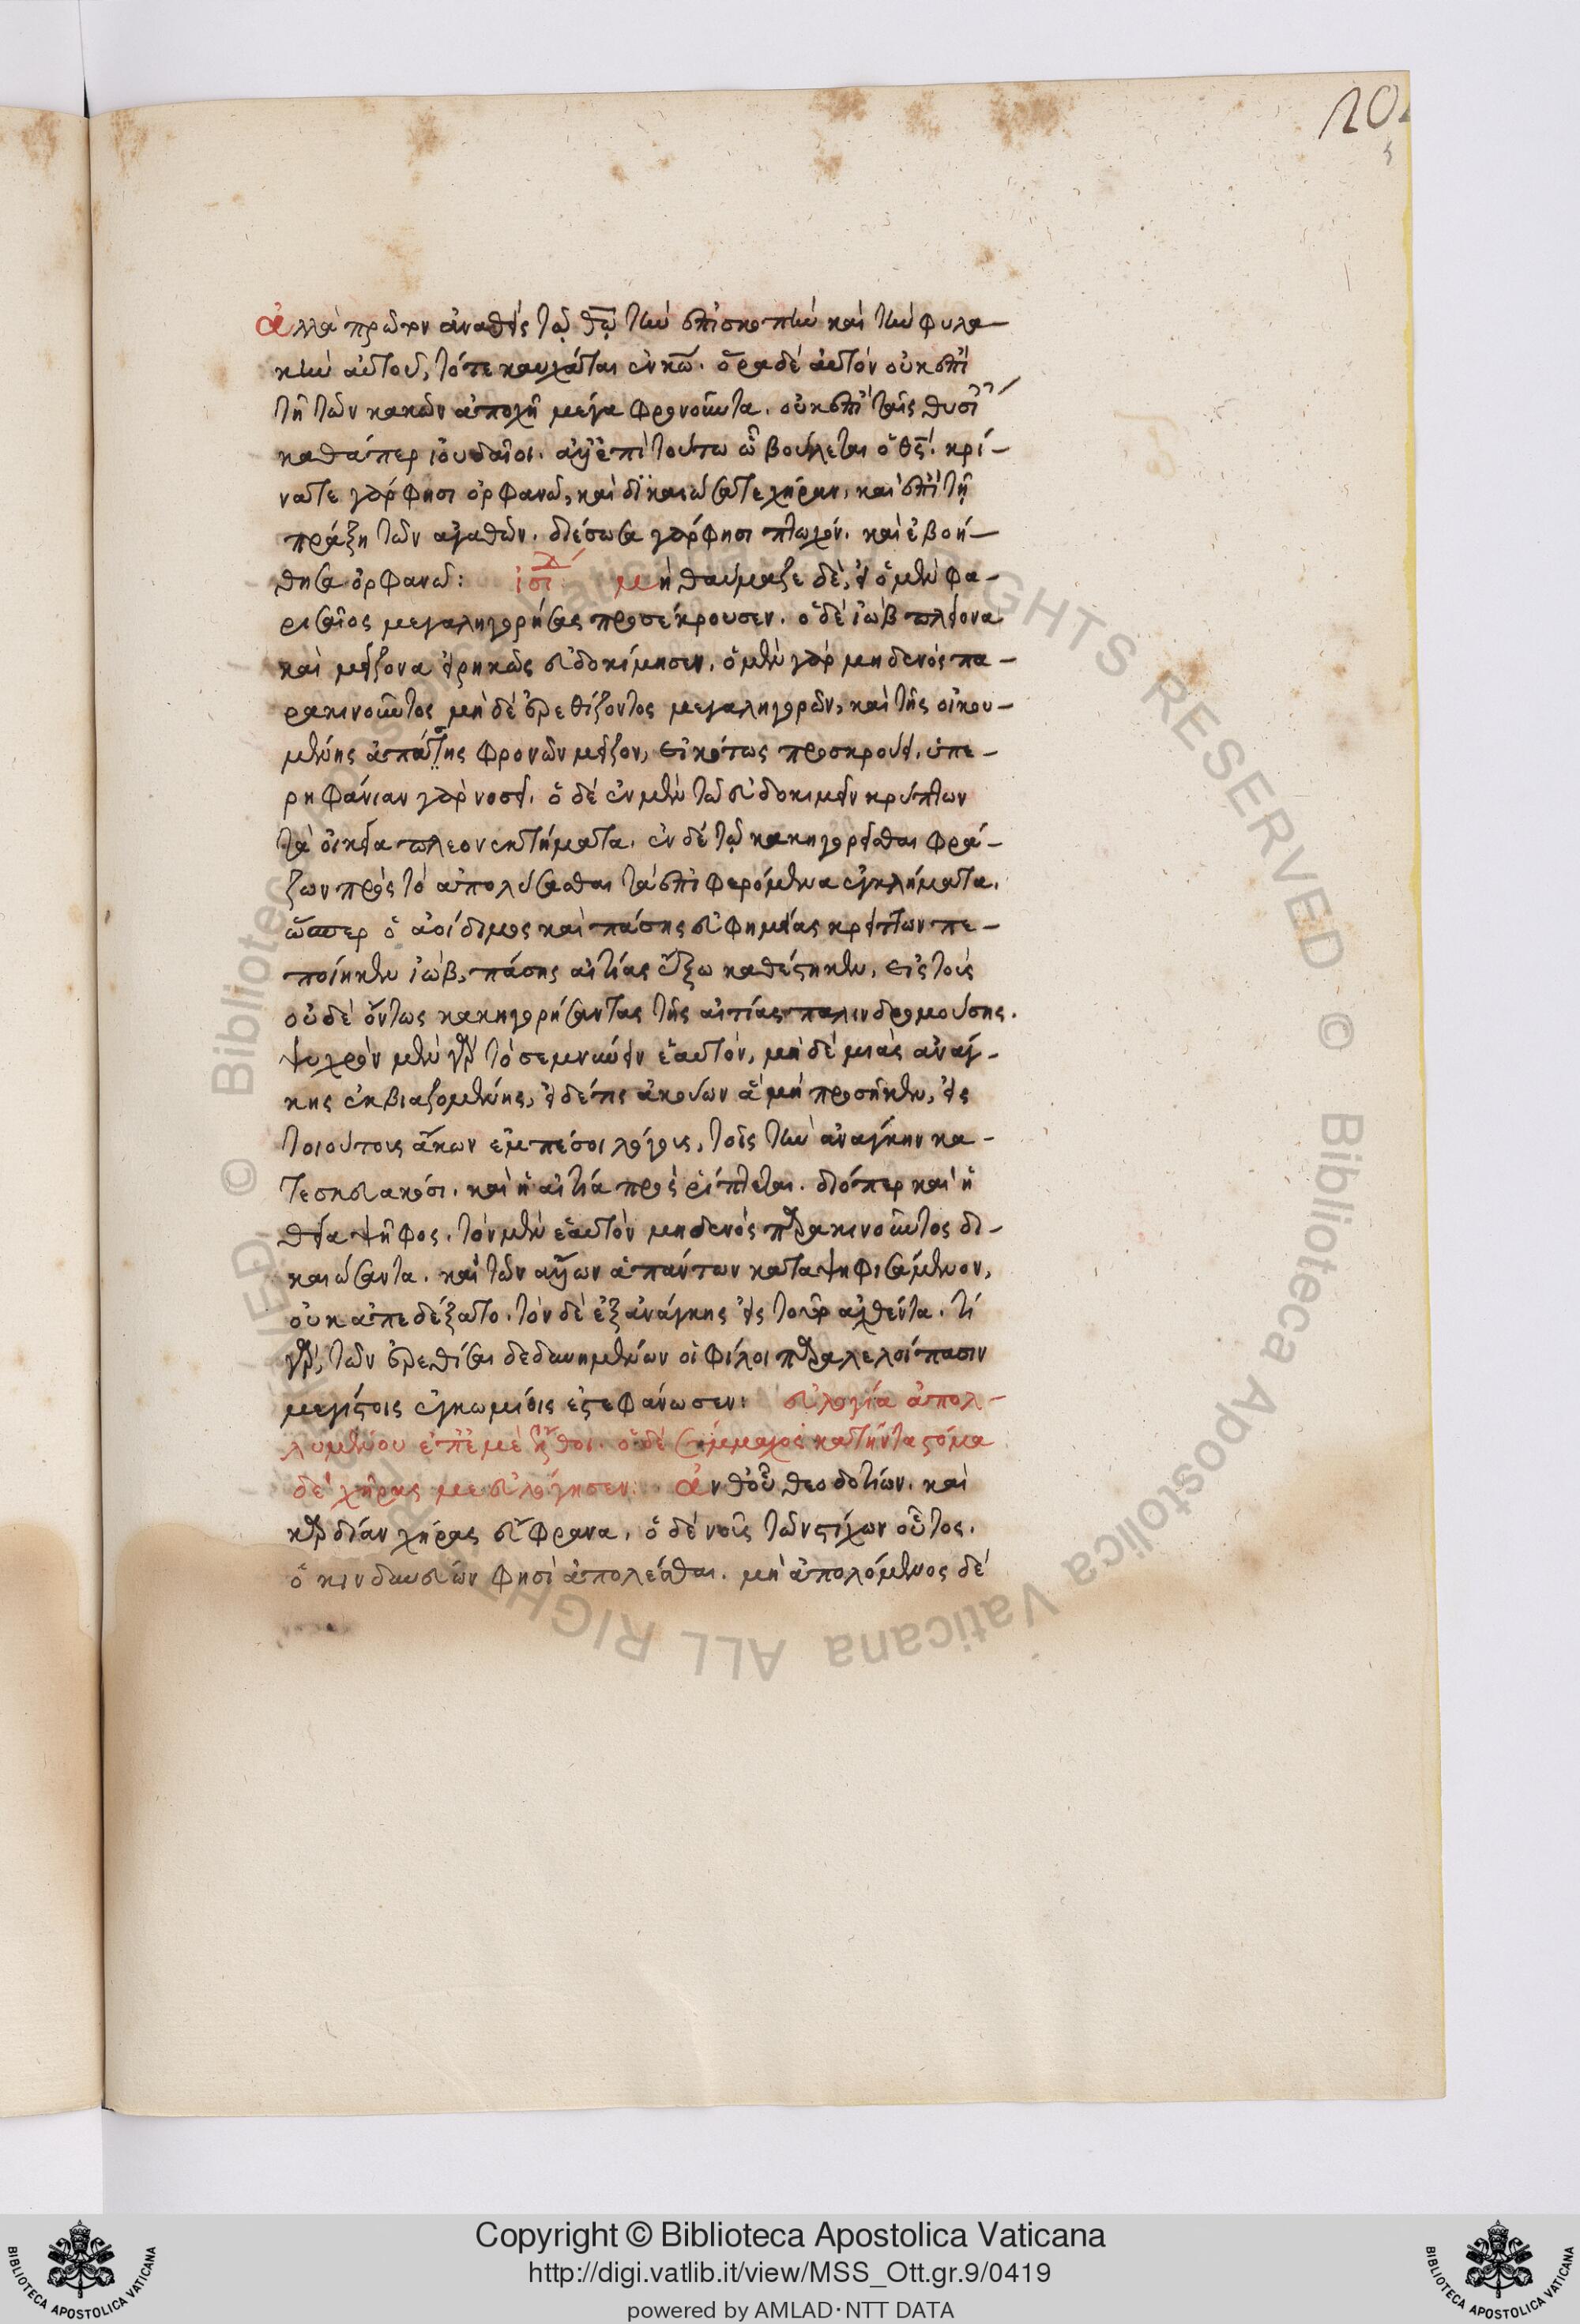 20
ἀλλὰ πρῶτον ἀναθεὶς τῷ θῷ τὴν ἐπισκοπὴν καὶ τὴν φυλα-
κὴν αὐτοῦ, τότε καυχᾶται ἐν κῶ. ὅρα δὲ αὐτὸν οὐκ ἐπὶ
τῇ τῶν κακῶν ἀποχῇ μέγα φρονοῦντα. οὐκ ἐπὶ ταῖς θυσι
καθάπερ ἰουδαῖοι. ἀλλ' ἐπὶ τούτω ὧ βούλεται ὁ θς. κρί-
νατε γάρ φησι ὀρφανῶ, καὶ δικαιώσατε χήραν, καὶ ἐπὶ τῇ
πράξῃ τῶν ἀγαθῶν. διέσωσα γάρ φησι πτωχόν. καὶ ἐβοή-
θησα ὀρφανῶ: ἰσι μὴ θαύμαζε δὲ, εἰ ὁ μὲν φα-
ρισαῖος μεγαληγορήσας προσέκρουσεν. ὁ δὲ ἰὼβ πλείονα
καὶ μείζονα εἰρηκὼς εὐδοκίμησεν, ὁ μὲν γὰρ μηδενὸς πα-
ρακινοῦντος μὴ δὲ ἐρεθίζοντος μεγαληγορῶν, καὶ τῆς οἰκου-
μένης ἁπάσης φρονῶν μεῖζον, εἰκότως προσκρούει. ὑπε-
ρηφάνιαν γὰρ νοσεῖ. ὁ δὲ ἐν μὲν τῶ εὐδοκιμεῖν κρύπτων
τὰ οἰκεῖα πλεονεκτήματα. ἐν δὲ τῷ κακηγορεῖσθαι φρά-
ζων πρὸς τὸ ἀπολύσασθαι τὰ ἐπιφερόμενα ἐγκλήματα.
ὥσπερ ὁ ἀοίδιμος καὶ πάσης εὐφημίας κρείττων πε-
ποίηκεν ἰώβ, πάσης αἰτίας ἔξω καθέστηκεν, εἰς τοὺς
οὐ δεόντως κακηγορήσαντας τῆς αἰτίας παλινδρομούσης.
ψυχρὸν μὲν γὰρ τὸ σεμνύνειν ἑαυτόν, μὴ δὲ μιᾶς ἀνάγ-
κης ἐκβιαζομένης, εἰ δέ τις ἀκούων ἃ μὴ προσῆκεν, εἰς
τοιούτους ἄκων ἐμπέσοι λόγους, τοῖς τὴν ἀνάγκην κα-
τεσκευακόσι. καὶ ἡ αἰτία προσρίπτεται. διόπερ καὶ ἡ
θεία ψῆφος. τὸν μὲν ἑαυτὸν μηδενὸς παρακινοῦντος δι-
καιώσαντα. καὶ τῶν ἄλλων ἁπάντων καταψηφισάμενον,
οὐκ ἀπεδέξατο. τὸν δὲ ἐξ ἀνάγκης εἰς τοῦτ' ἀχθέντα. τί
γὰρ, τῶν ἐρεθίσαι δεδυνημένων οἱ φίλοι παραλελοίπασιν
μεγίστοις ἐγκωμίοις ἐστεφάνωσεν: εὐλογία ἀπολ-
λυμένου ἐπ' ἐμὲ ἔλθοι. ὁ δὲ σύμμαχος κατήντα στόμα
δὲ χήρας με εὐλόγησεν: ἀνθ' οὗ θεοδοτίων. καὶ
καρδίαν χήρας εὔφρανα, ὁ δὲ νοῦς τῶν στίχων οὗτος.
ὁ κινδυνεύων φησὶ ἀπολέσθαι. μὴ ἀπολόμενος δὲ
© Biblioteca Apostolica Vaticana ALL RIGHTS RESERVED © Biblioteca Apostolica Vaticana ALL RIGHTS RESERVED
Copyright © Biblioteca Apostolica Vaticana
http://digi.vatlib.it/view/MSS_Ott.gr.9/0419
powered by AMLAD·NTT DATA
BIBLIOTECA APOSTOLICA VATICANA
BIBLIOTECA APOSTOLICA VATICANA